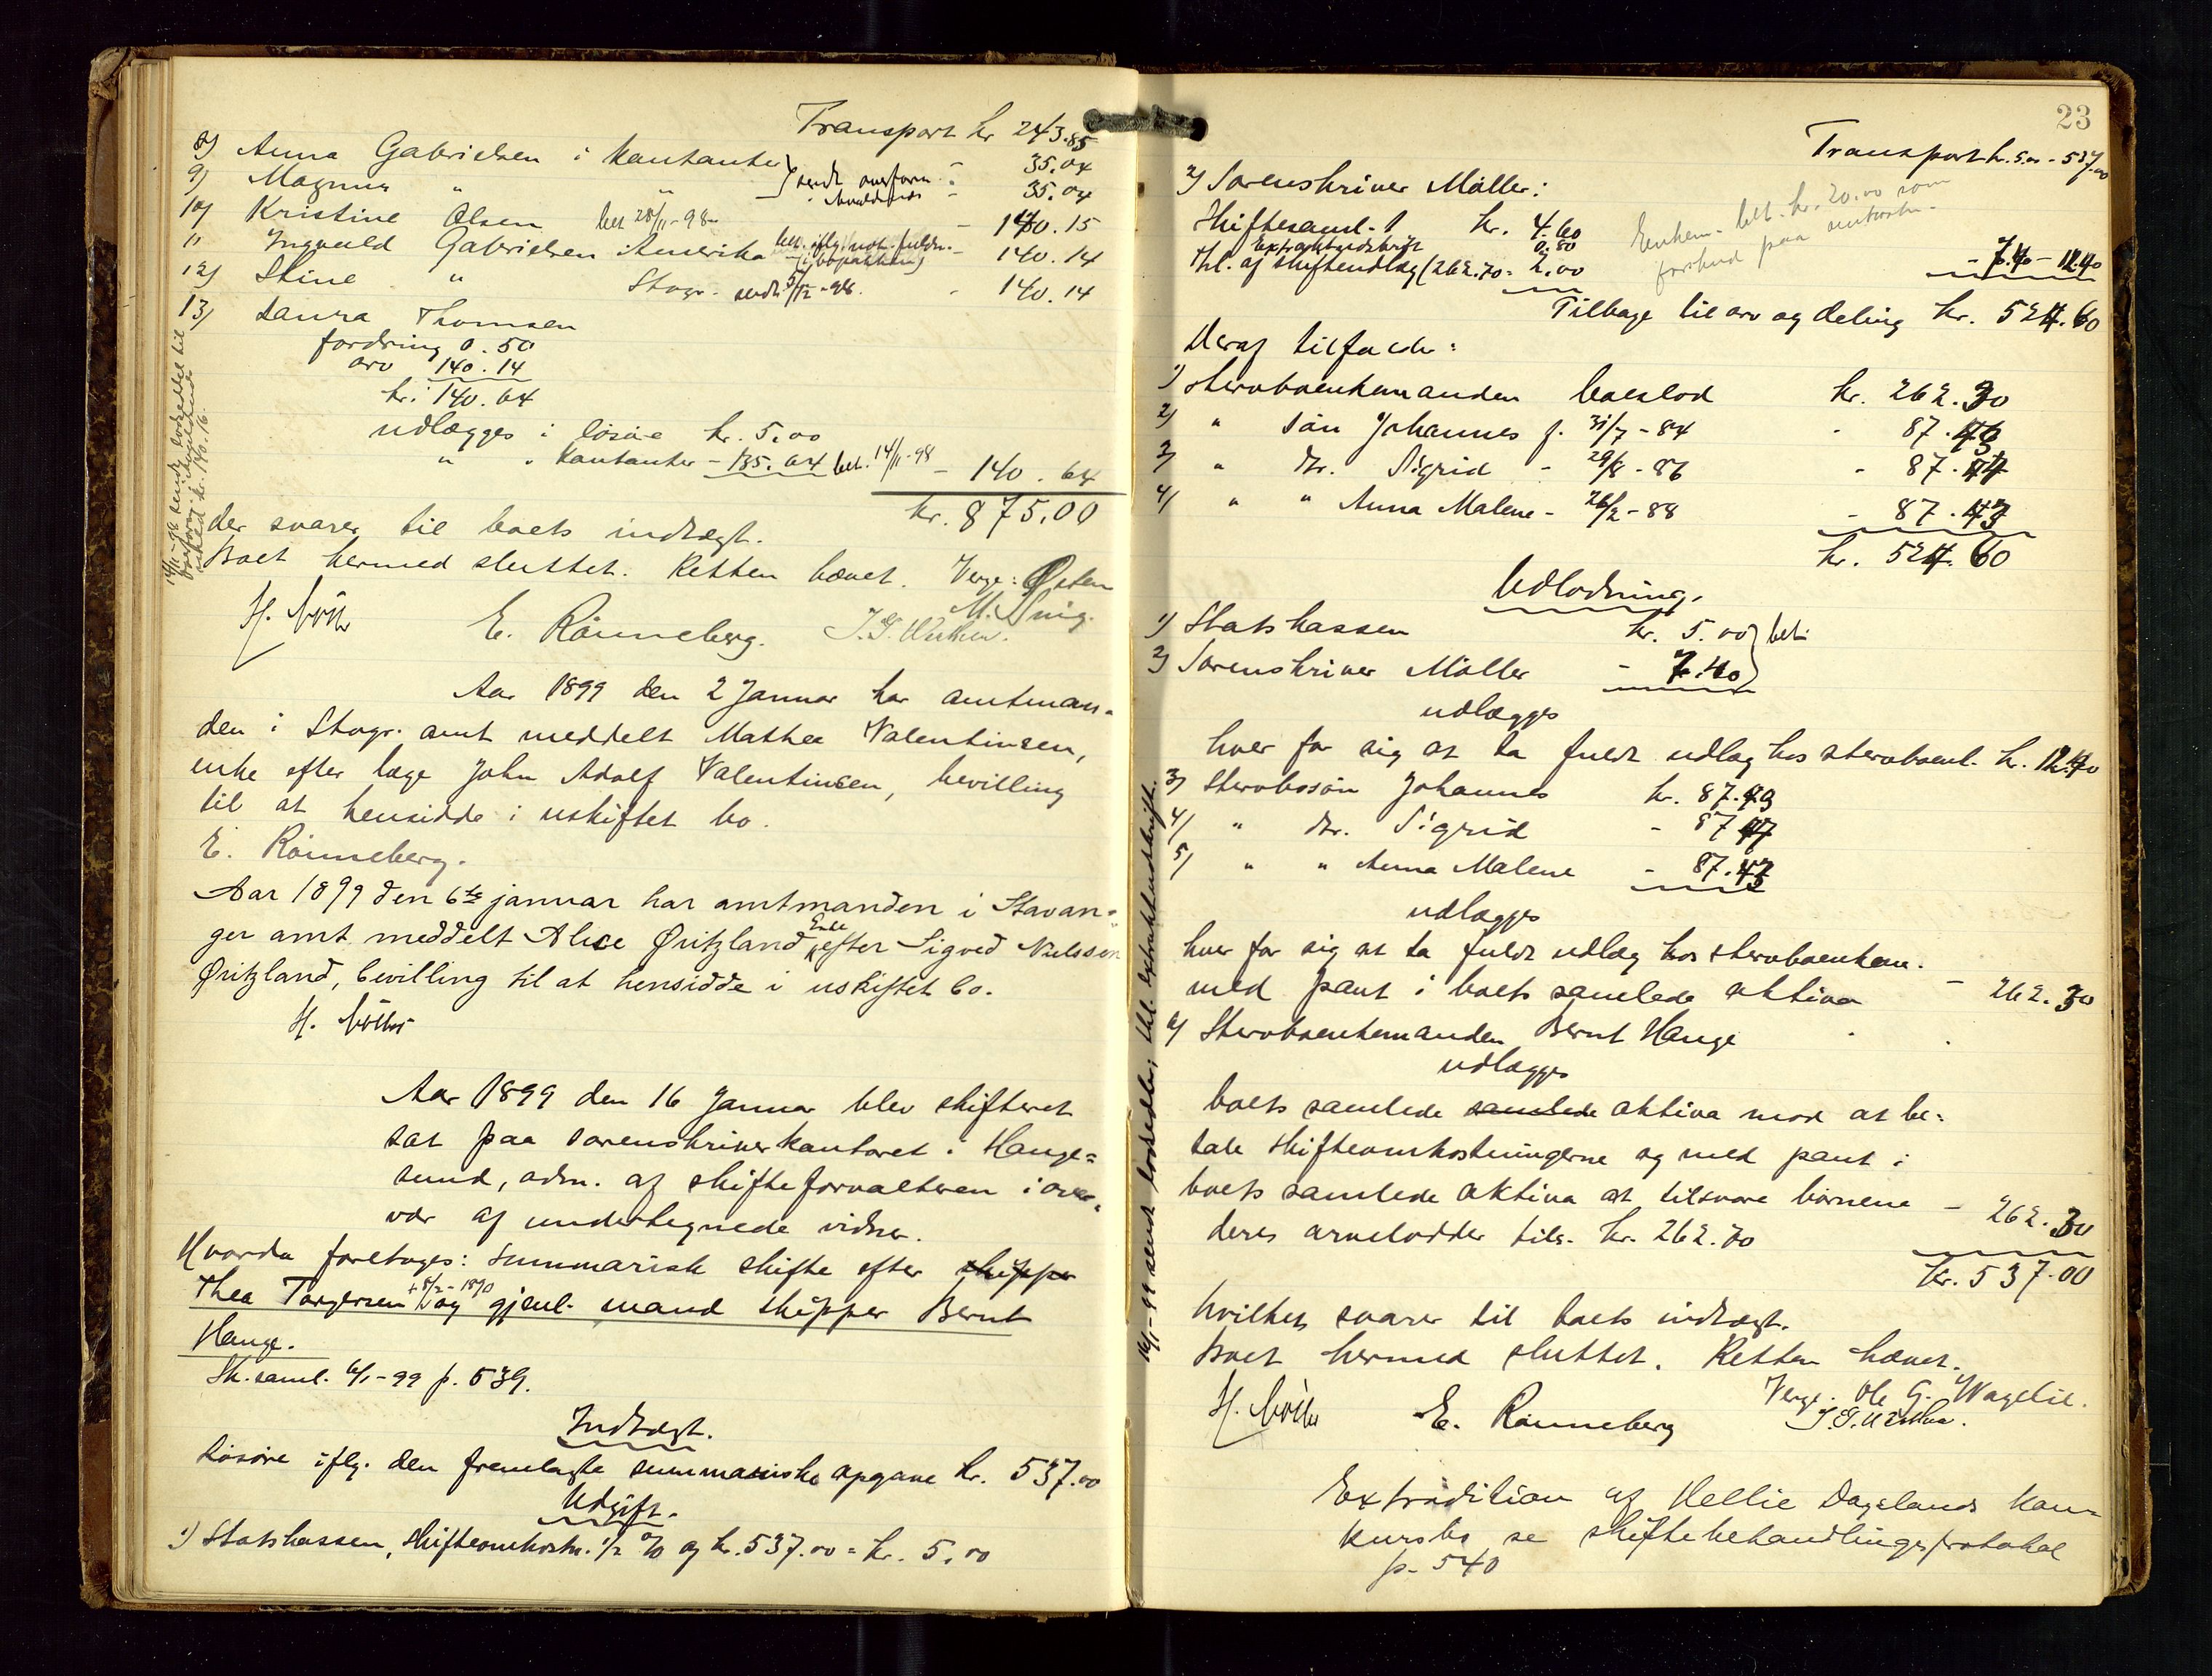 Transport kr 243.85
8) Anna Gabrielsen i kontanter } sendt overform. - 35.04
9) Magnus " " - 35.04
10) Kristine Olsen bet 28/11-98 - 140.15
11 Ingvald Gabrielsen Amerika bet. iflg. not. fuldm. - 140.14
12) Stine " Stavgr. sendt 5/12-98. - 140.14
13) Laura Thomsen
fordring 0.50
arv 140.14
kr. 140.64
udlægges i løsøre kr. 5.00
" " kontanter - 135.64 bet. 14/11-98 - 140.64
kr. 875.00
der svarer til boets indtægt.
Boet hermed sluttet. Retten hævet. Verge: Østen
M. Snig.
E. Rönneberg.
Aar 1899 den 2 Januar har amtman-
den i Stavgr. amt meddelt Mathea Valentinsen,
enke efter læge John Adolf Valentinsen, bevilling
til at hensidde i uskiftet bo.
E. Rönneberg.
Aar 1899 den 6te januar har amtmanden i Stavan-
ger amt meddelt Alice Øritzland Enke efter Sigved Nielssøn
Øritzland, bevilling til at hensidde i uskiftet bo.
Aar 1899 den 16 Januar blev skifteret
sat paa sorenskriverkontoret i Hauge=
sund, adm. af skifteforvalteren i over-
vær af undertegnede vidner.
Hvorda foretoges: Summarisk skifte efter skipper
Thea Torgersen + 8/2-1890 og gjenl. mand skipper Bernt
Hauge.
Sk. saml. 6/1-99 p. 539.
Indtægt.
Løsøre iflg. den fremlagte summariske opgave kr. 537.00
Udgift.
1) Statskassen, skifteomkostn. 1/2 % af kr. 537.00 = kr. 5.00
23
Transport kr. 5.00 - 537.00
2) Sorenskriver Möller:
Skiftesaml. 1 kr. 4.60
Extraktudskrift 0.80
Thl. af skifteudlæg (262.70 = 2.00 - 7.40 - 12.40
Enkem. bet. kr. 20.00 som
forskud paa omkostn.
Tilbage til arv og deling kr. 524.60
Deraf tilfalder:
1) Stervboenkemanden boeslod kr. 262.30
2) " søn Johannes f. 31/7-84 - 87.43
3) " dtr. Sigrid - 29/8-86 - 87.44
4) " " Anna Malene - 26/2-88 - 87.43
kr. 524.60
Udlodning.
1) Statskassen kr. 5.00 } bet.
2) Sorenskriver Möller - 7.40
udlægges
hver for sig at ta fuldt udlæg hos stervboenl. kr. 12.40
3) Stervbosøn Johannes kr. 87.43
4) " dtr. Sigrid - 87.44
5) " " Anna Malene - 87.43
udlægges
hver for sig at ta fuldt udlæg hos stervboenkem.
med pant i boets samlede aktiva - 262.30
6) Stervboenkemanden Bernt Hauge
udlægges
boets samlede samlede aktiva mod at be=
tale skifteomkostningerne og med pant i
boets samlede aktiva at tilsvare børnene
deres arvelodder tils. kr. 262.30 - 262.30
kr. 537.00
hvilket svarer til boets indtægt.
Boet hermed sluttet. Retten hævet.
Verge: Ole G. Wagelie.
E. Rönneberg
Extradition af Hellie Dagslands kon=
kursbo se skiftebehandlingsprotokol
p. 540
16/1-99 sendt lodsedler, thl. extraktudskrift.